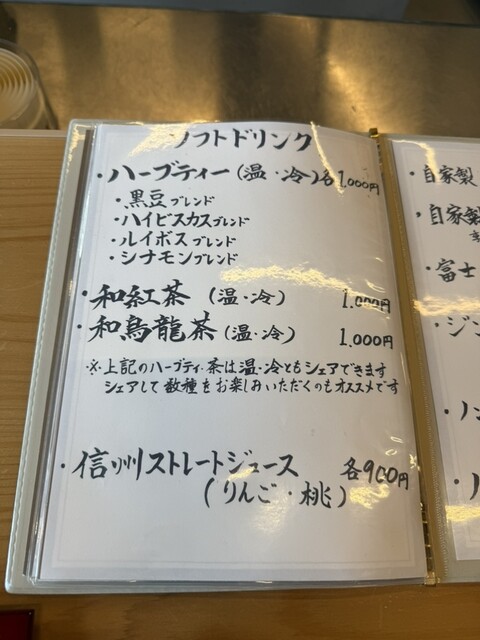 ソフトドリンク
・ハーブティー(温・冷)各1,000円
・黒豆ブレンド
・ハイビスカスブレンド
・ルイボスブレンド
・シナモンブレンド
・和紅茶 (温・冷) 1,000円
・和烏龍茶(温・冷) 1,000円
※上記のハーブティ・茶は温・冷ともシェアできます
シェアして数種をお楽しみいただくのもオススメです
・信州ストレートジュース 各900円
(りんご・桃)
・自家製
・自家製
・富士
・ジン